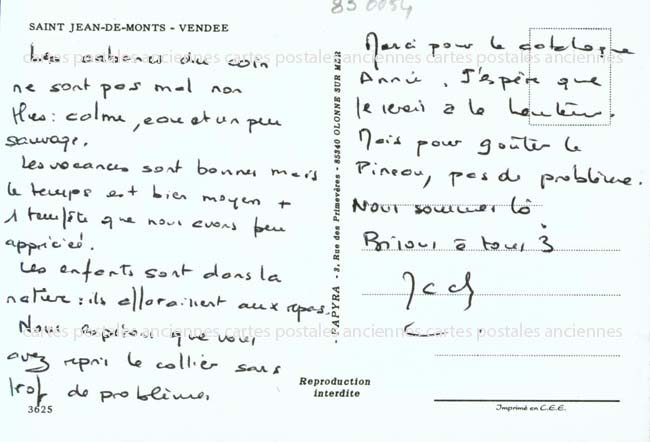 830054
SAINT JEAN-DE-MONTS - VENDEE
Les cabanes du coin
ne sont pas mal non
plus : calme, eau et un peu
sauvage.
Les vacances sont bonnes mais
le temps est bien moyen +
1 tempête que nous avons peu
appréciée.
Les enfants sont dans la
nature : ils aux repas.
Nous espérons que vous
avez repris le collier sans
trop de problèmes
3625
Reproduction
interdite
PAPYRA - 3, Rue des Primevères - 85340 OLONNE SUR MER
Merci pour le catalogue
Annie. J'espère que
je serai à la hauteur.
Mais pour goûter le
Pineau, pas de problème.
Nous sommes là
Bisous à tous 3
Imprimé en C.E.E.
cartes postales anciennes cartes postales anciennes cartes postales anciennes